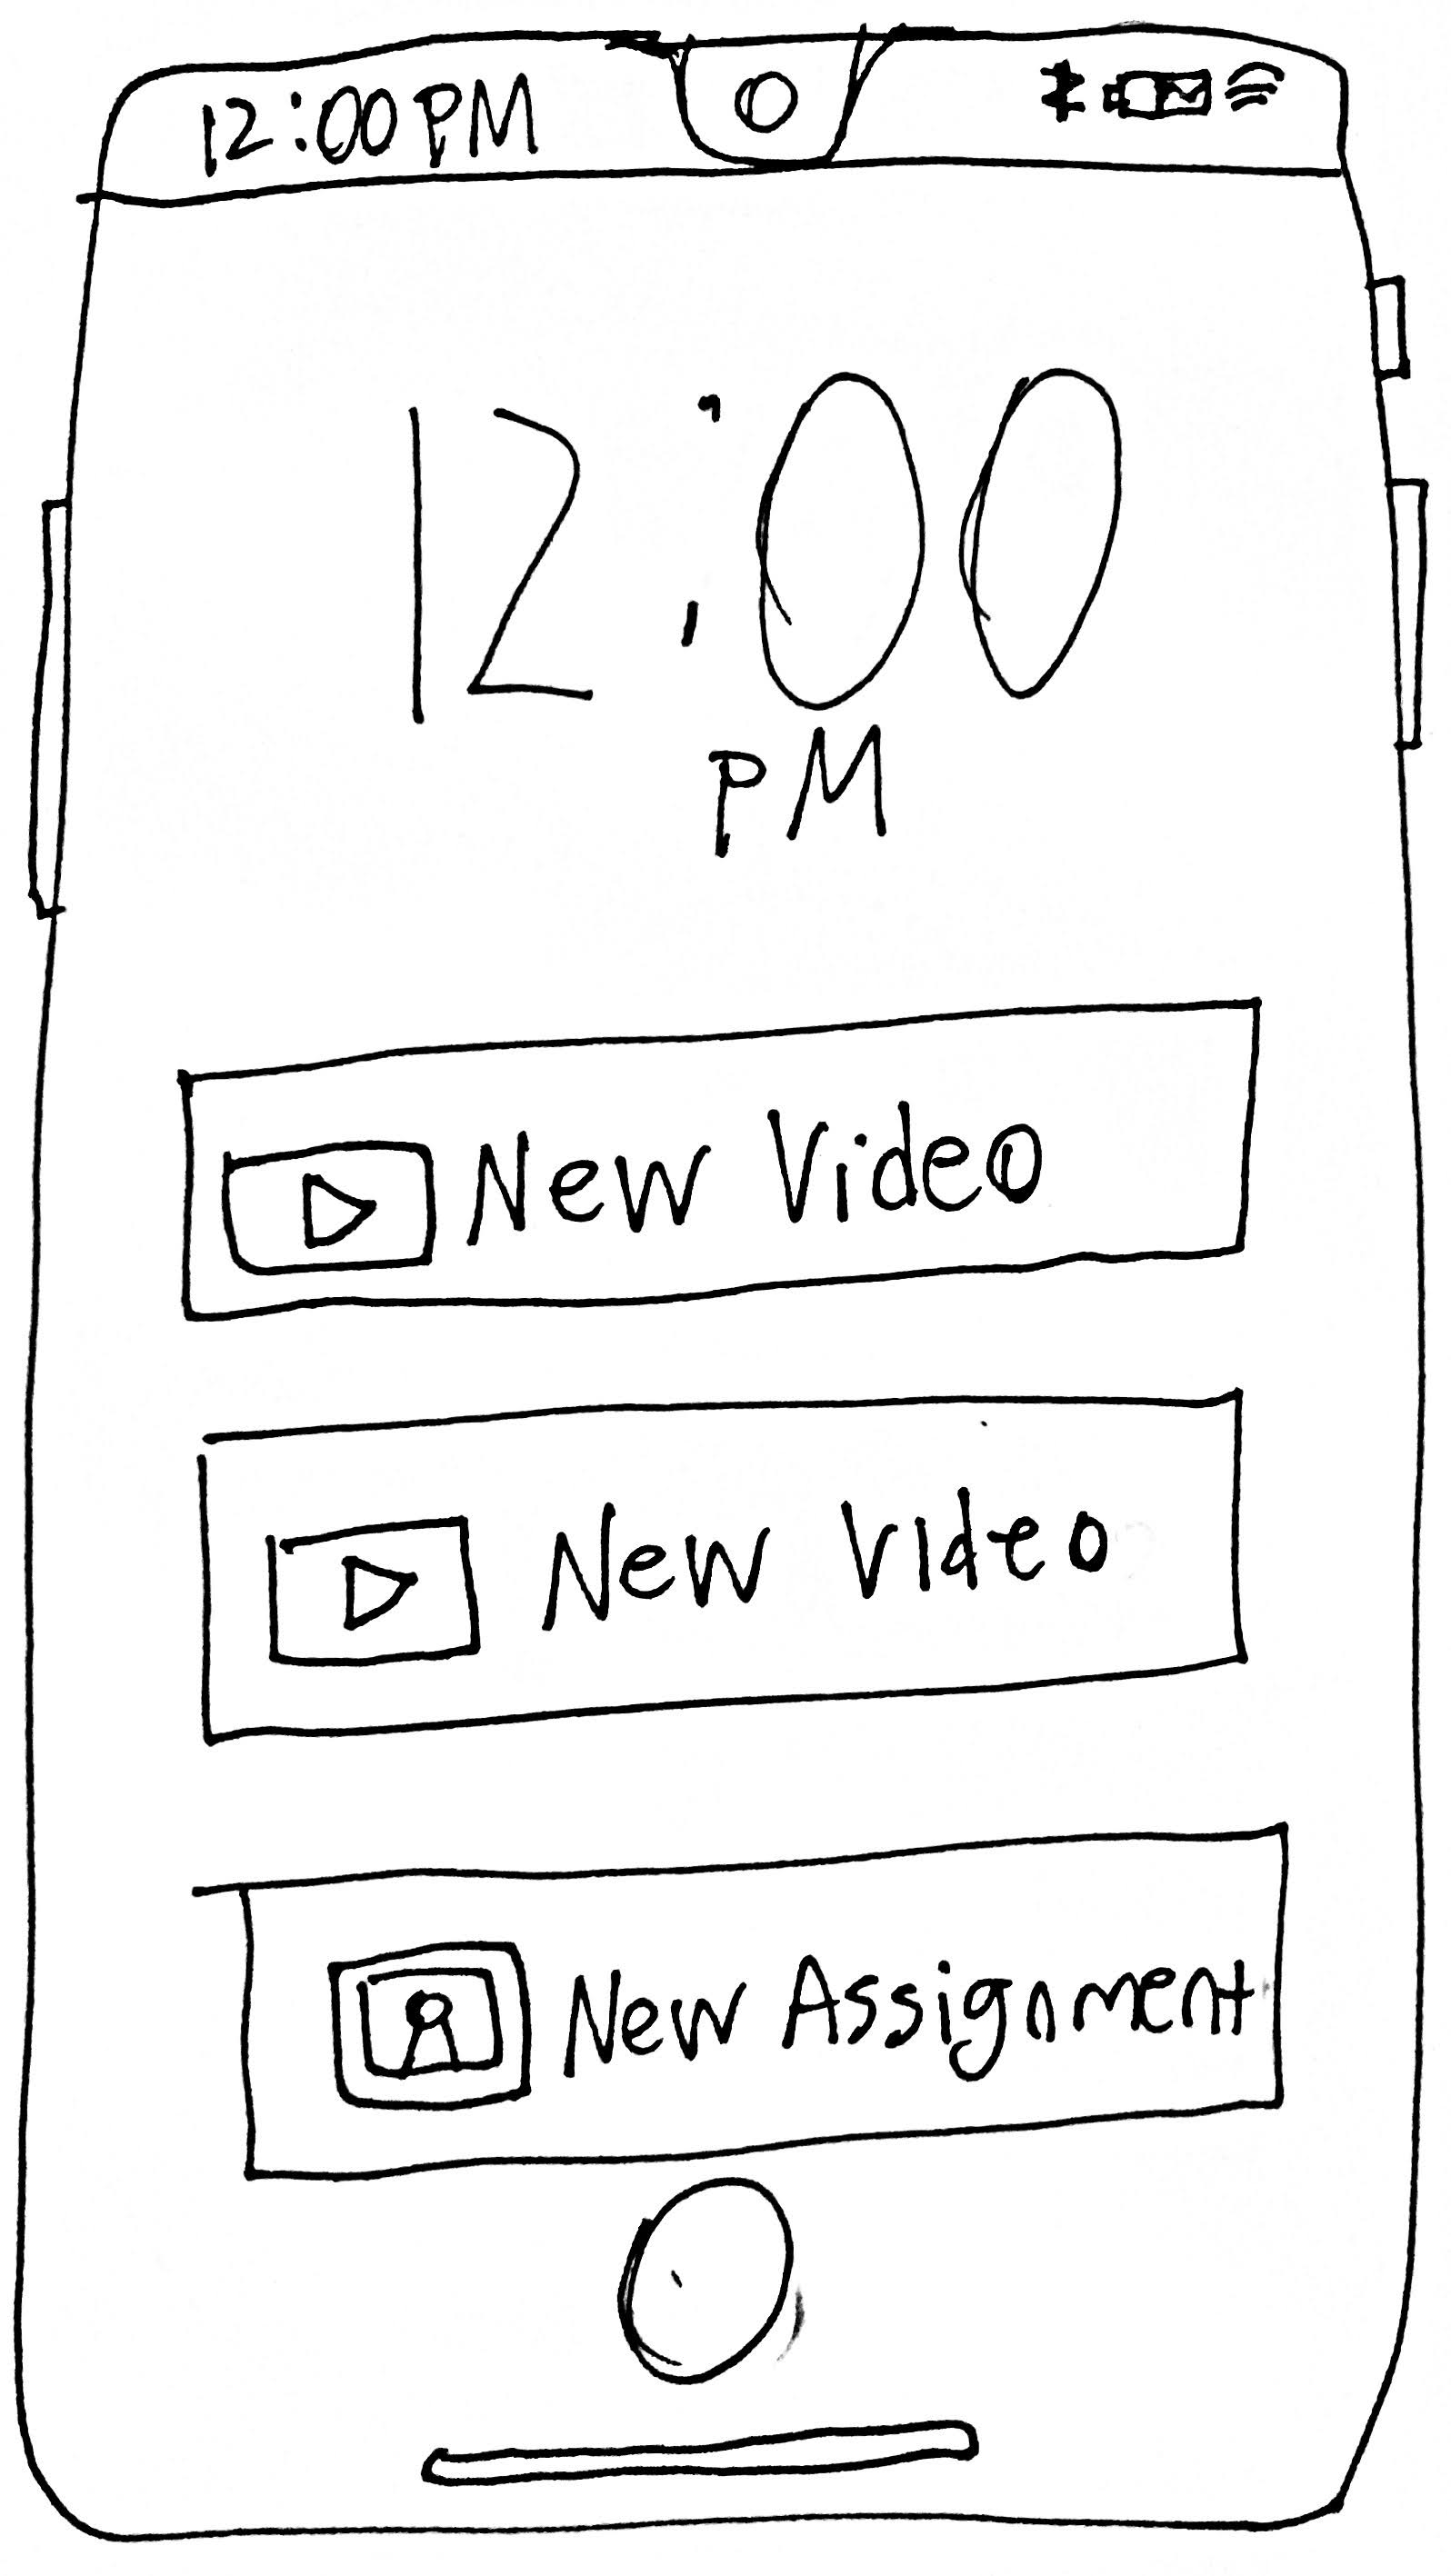 12:00 PM
12:00
PM
New Video
New Video
New Assignment